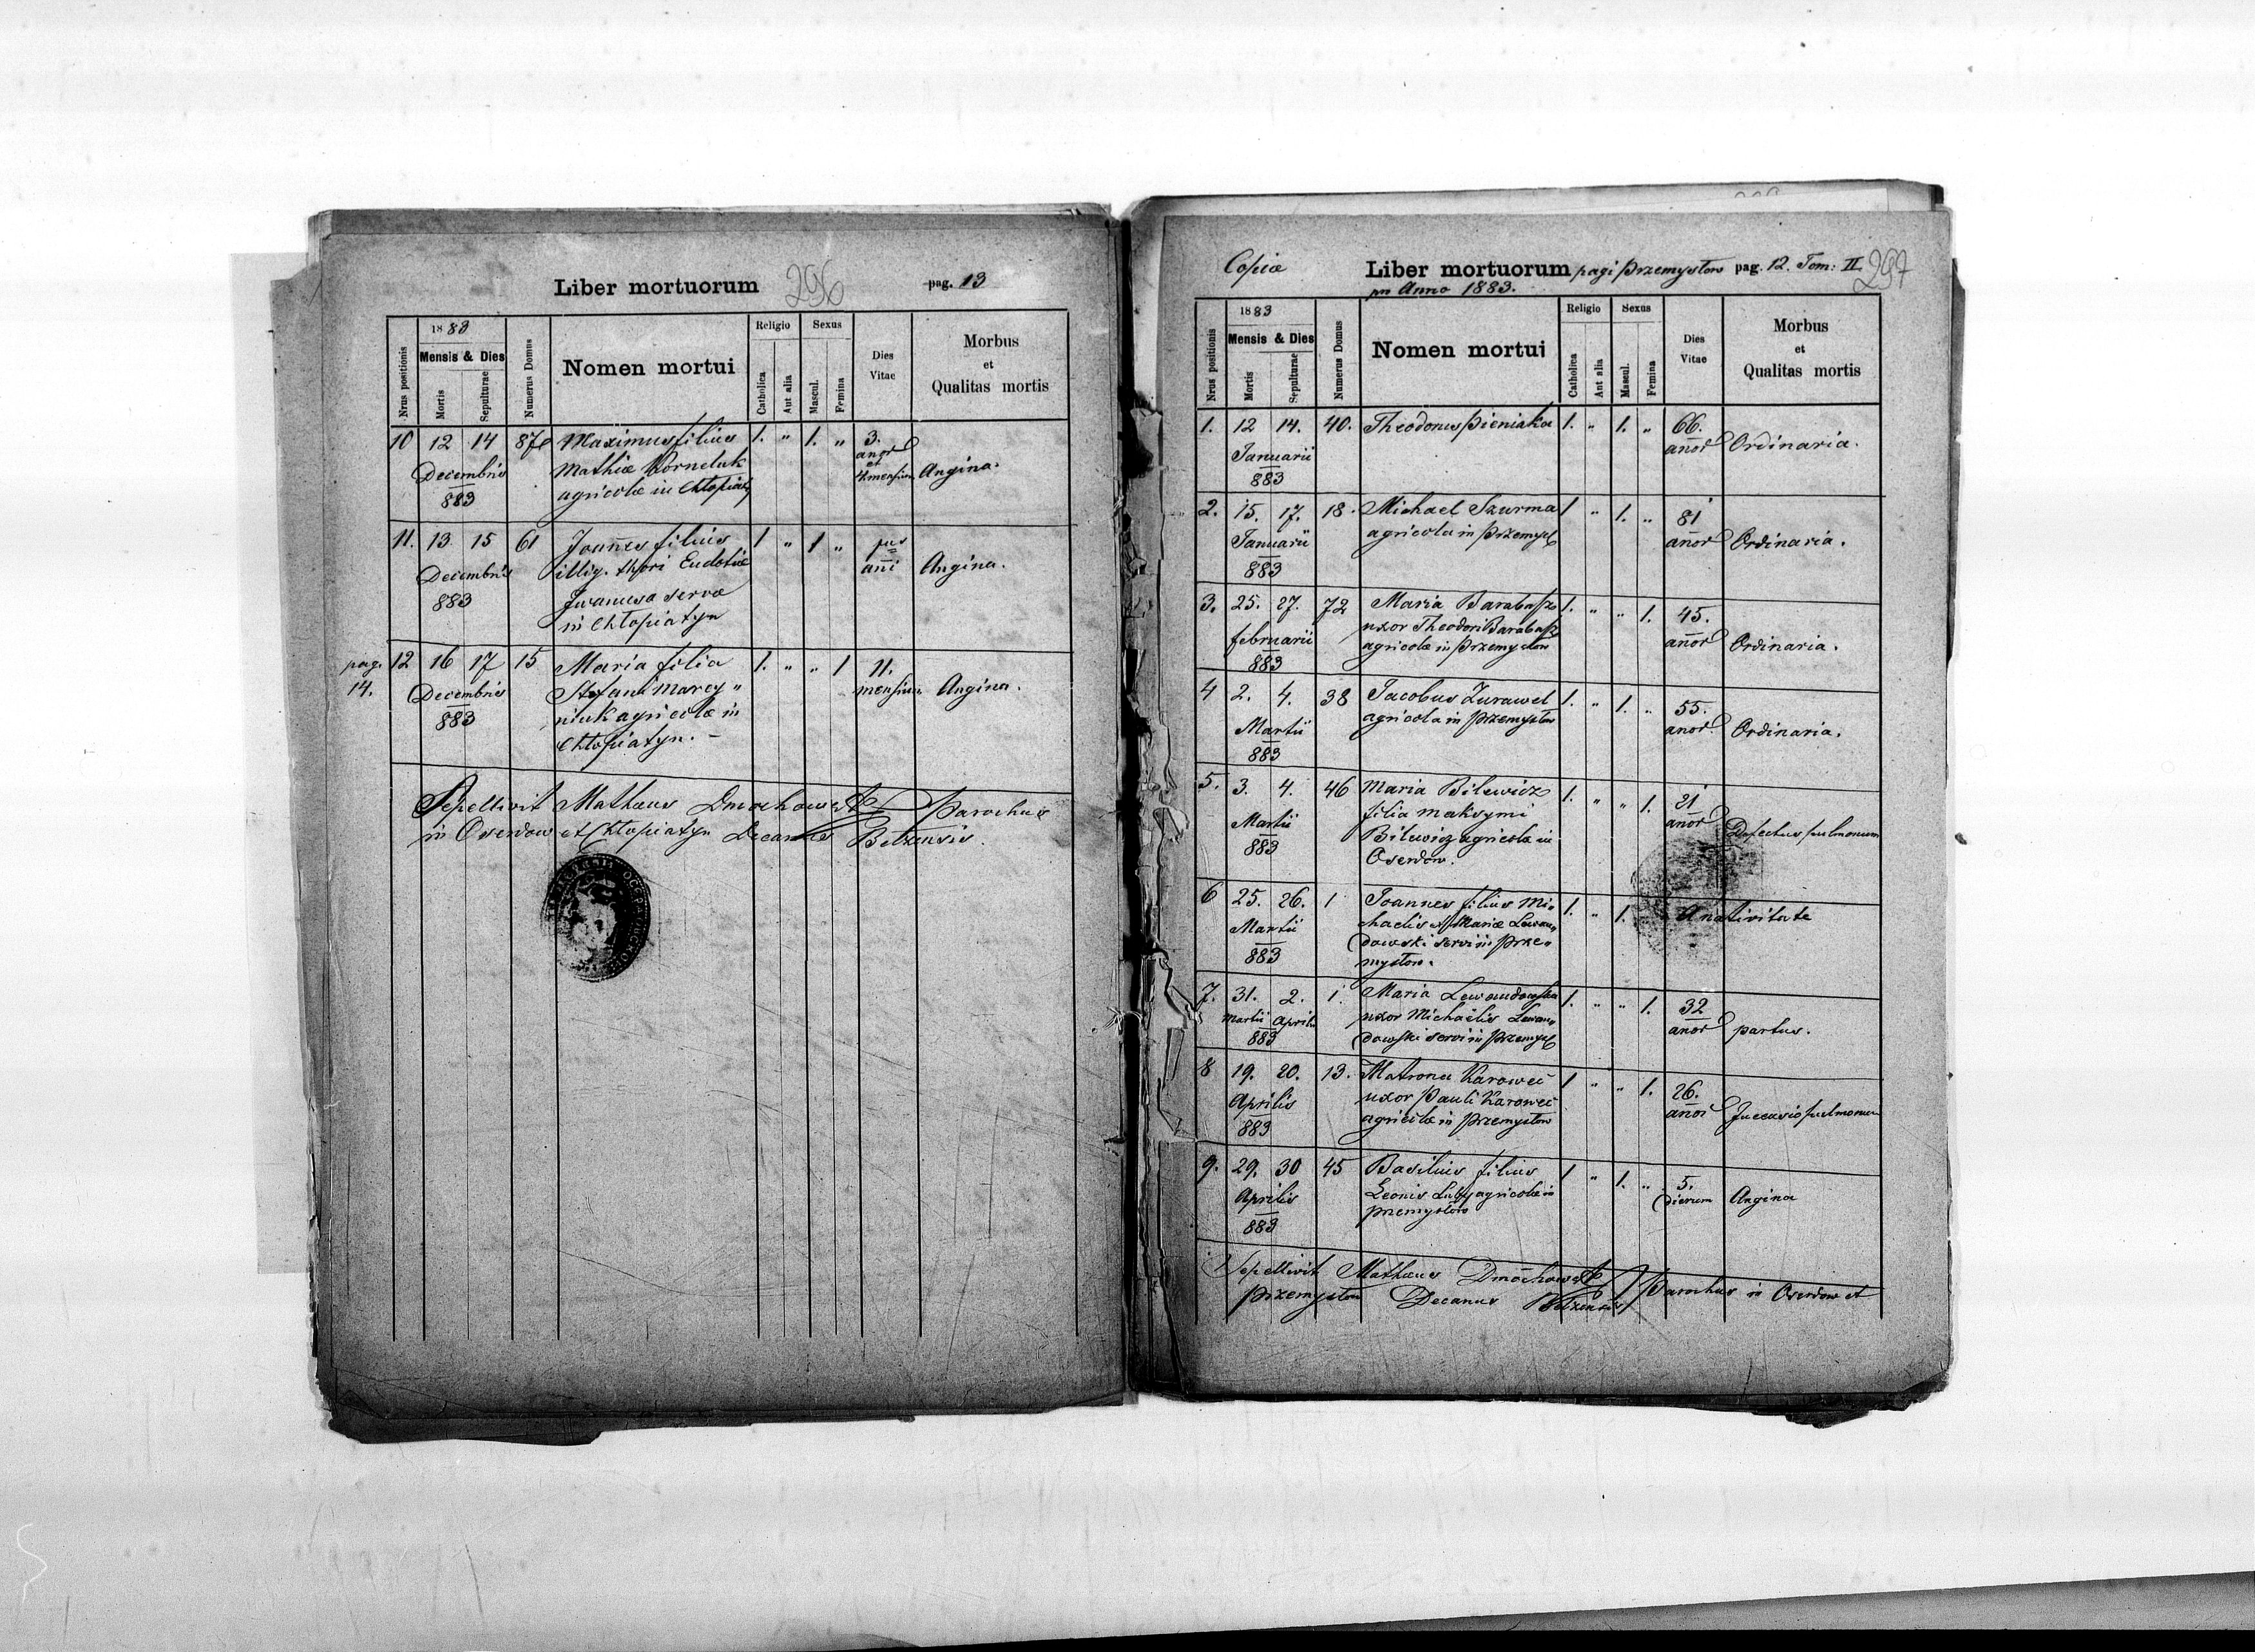 Liber mortuorum 296 pag. 13
Nrus positionis
1883
Mensis & Dies
Mortis
Sepulturae
Numerus Domus
Nomen mortui
Religio
Catholica
Aut alia
Sexus
Mascul.
Femina
Dies
Vitae
Morbus
et
Qualitas mortis
10 12 14 87 Maximus filius 1. " 1. " 3.
Decembris Mathiæ Korneluk anor
883 agricolæ in Chłopiaty et 4 mensium Angina.
11. 13 15 61 Joannes filius 1 " 1 "
Decembris illig. thori Eudotiæ ani Angina.
883 servæ
in Chłopiatyn
pag. 14.
12 16 17 15 Maria filia 1. " " 1 11.
Decembris Stefani Marcy" mensium Angina.
883 niuk agricolæ in
Chłopiatyn. –
Sepelivit Mathæus Dmochowski Parochus
in Oserdow et Chłopiatyn Decanus Belzensis.
Copiæ Liber mortuorum pagi Przemysłow pag. 12. Tom: II. 297
pro Anno 1883.
Nrus positionis
1883
Mensis & Dies
Mortis
Sepulturae
Numerus Domus
Nomen mortui
Religio
Catholica
Aut alia
Sexus
Mascul.
Femina
Dies
Vitae
Morbus
et
Qualitas mortis
1. 12 14. 40. Theodorus Pieniaka 1. " 1. " 66.
Januarii anor Ordinaria.
883
2. 15. 17. 18. Michael Szurma 1 " 1. " 81
Januarii agricola in Przemysł anor Ordinaria.
883
3. 25. 27. 72 Maria Barabasz 1. " " 1. 45.
februarii uxor Theodori Barabasz anor Ordinaria.
883 agricolæ in Przemysłow
4 2. 4. 38 Jacobus Żurawel 1. " 1. " 55.
Martii agricola in Przemysłow anor Ordinaria.
883
5. 3. 4. 46 Maria Bilewicz 1. " " 1. 21
Martii filia Maksymi anor Defectus pulmonum
883 Bilewicz agricolæ in
Oserdow.
6 25. 26. 1 Joannes filius Mi" 1. " 1. " Anativitate
Martii chaelis et Mariæ Lewan"
883 dowski servi in Prze"
mysłow.
7. 31. 2. 1. Maria Lewandowska 1. " " 1. 32
Martii Aprilis uxor Michaelis Lewan" anor partus.
883 dowski servi in Przemysł
8 19. 20. 13. Matrona Karoweć 1 " " 1. 26.
Aprilis uxor Pauli Karoweć anor pulmonum
883 agricolæ in Przemysłow
9. 29. 30 45 Basilius filius 1 " 1. " 5.
Aprilis Leonis agricolæ in dierum Angina
883 Przemysłow
Sepelivit Mathæus Dmochowski Parochus in Oserdow et
Przemysłow Decanus Belzensis